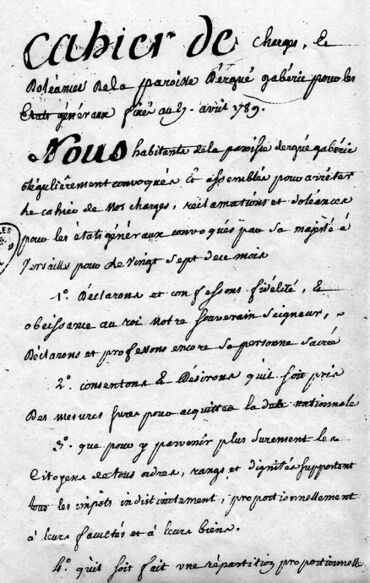 Cahier de charges, &
Doléances De la paroisse D'ergué gabéric pour les
Etats généraux fixés au 27. avril 1789.
Nous habitants de la paroisse dergué gabéric
régulièrement convoqués & assemblés pour arrêter
le cahier de nos charges, réclamations et doléances
pour les états généraux convoqués par sa majesté à
Versaille pour le vingt sept de ce mois
1°. Déclarons et confessons fidélité, &
obeissance au roi notre souverain seigneur,
Déclarons et professons encore sa personne sacré
2°. consentons & Désirons qu'il soit pris
Des mesures sures pour acquitter la dete nationnale
3°. que pour y parvenir plus surement les
Citoyens de tous ordres, rangs et dignités supportent
tous les impôts indistinctement, proportionnellement
à leurs facultés et à leurs biens.
4°. qu'il soit fait une répartition proportionnelle